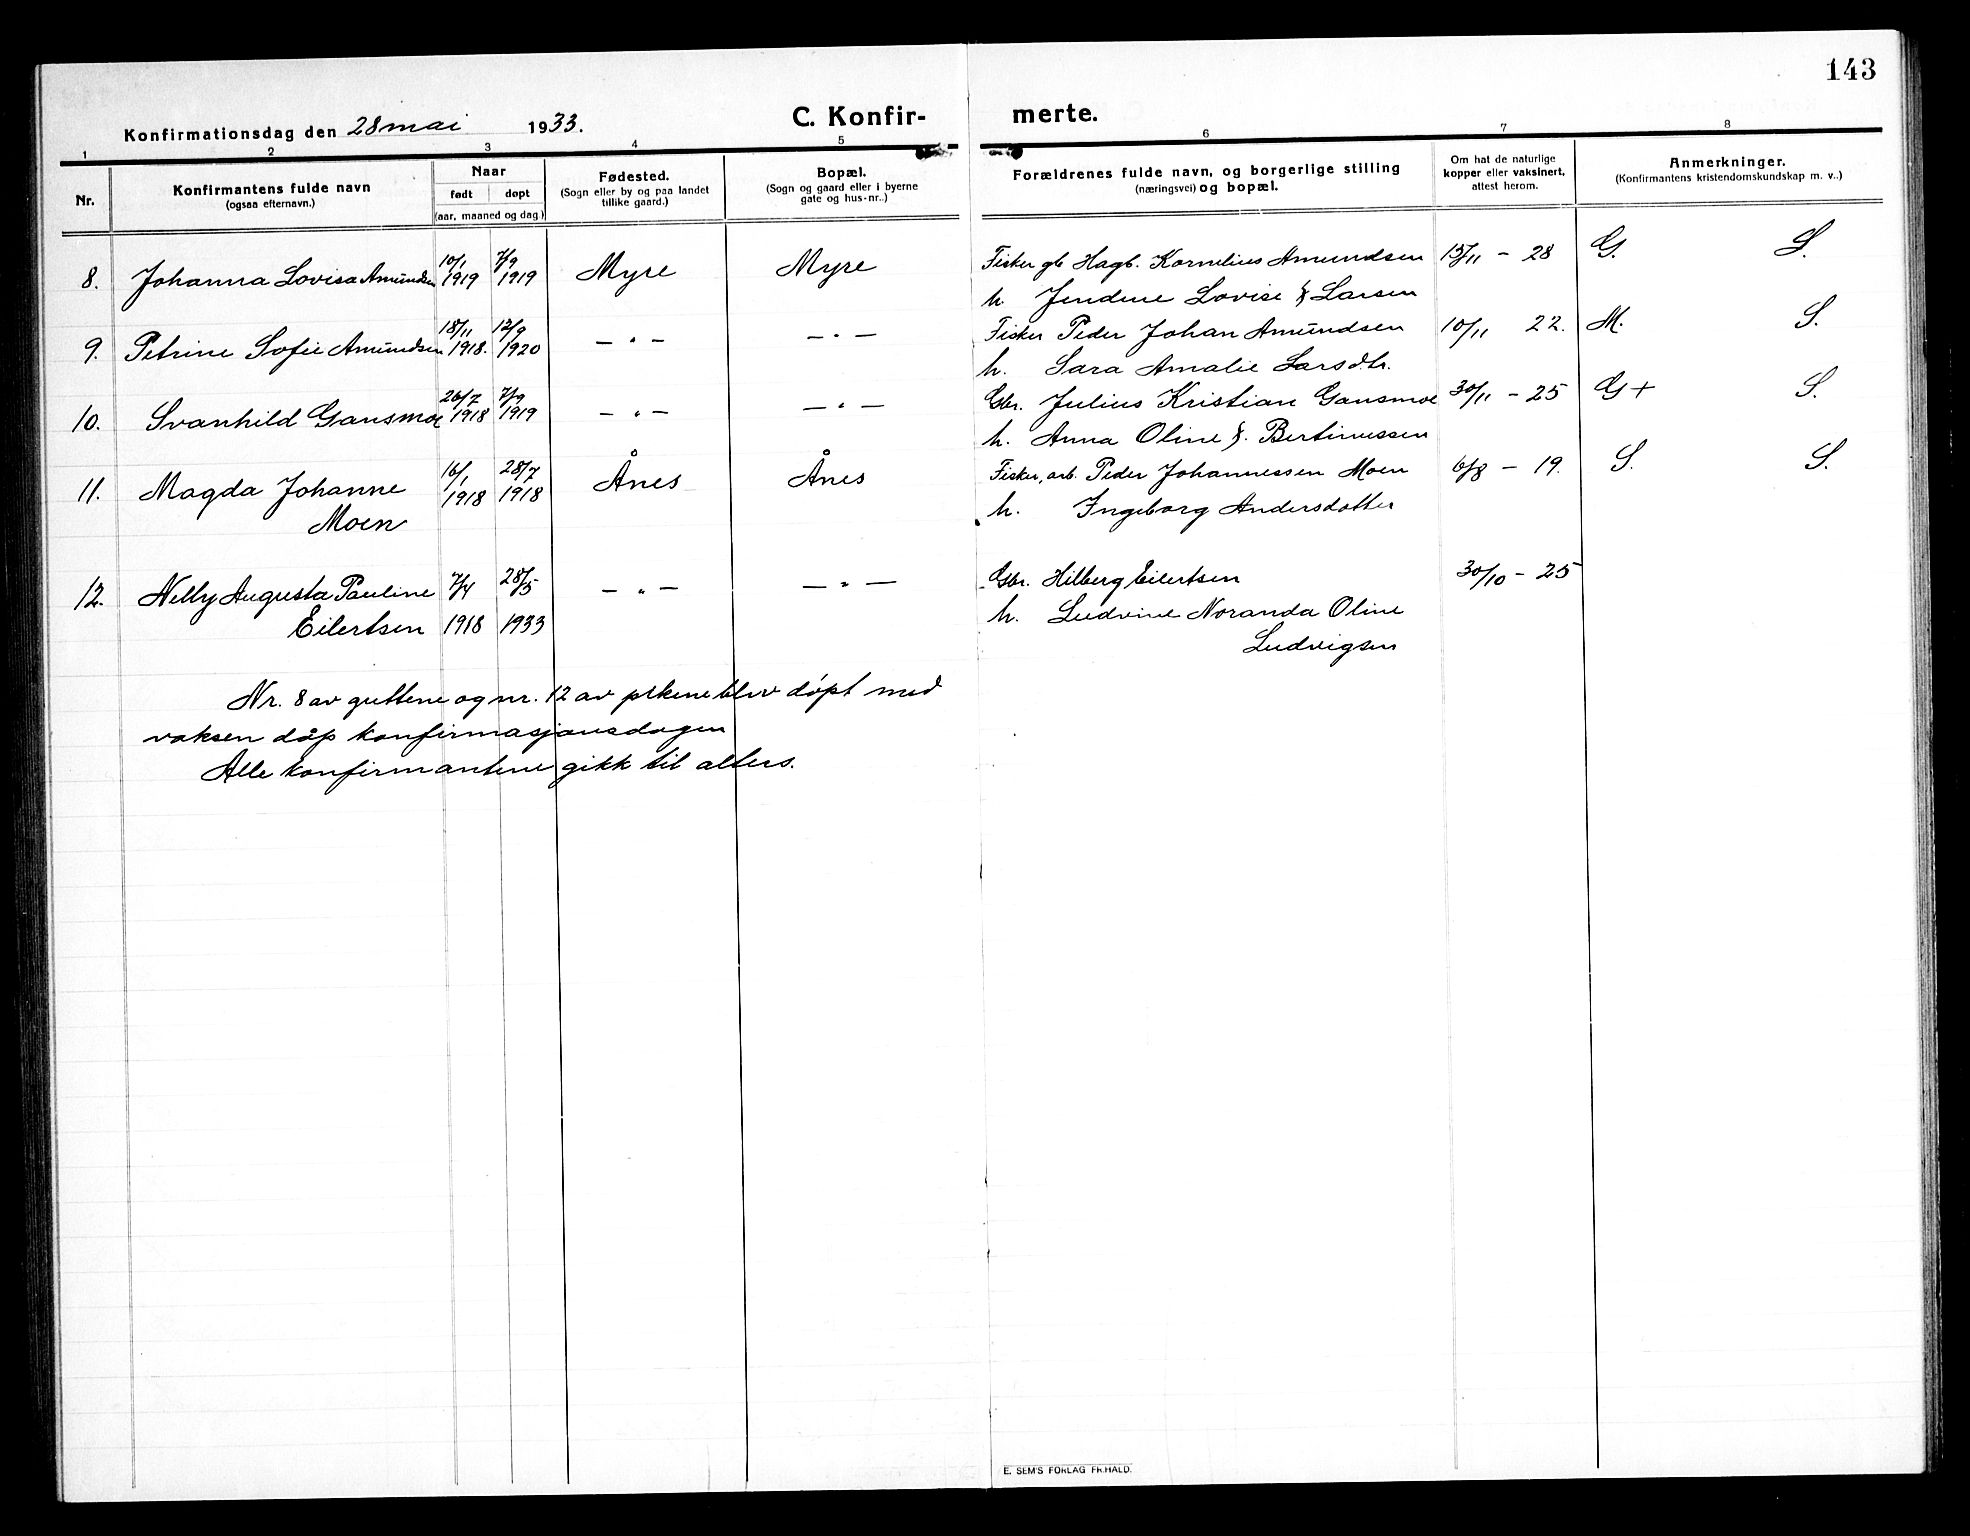 143
Konfirmationsdag den 28 mai 1933.
C. Konfir-
merte.
1 2 3 4 5 6 7 8
Nr.
Konfirmantens fulde navn
(ogsaa efternavn.)
Naar
født døpt
(aar, maaned og dag.)
Fødested.
(Sogn eller by og paa landet
tillike gaard.)
Bopæl.
(Sogn og gaard eller i byerne
gate og hus-nr..)
Forældrenes fulde navn, og borgerlige stilling
(næringsvei) og bopæl.
Om hat de naturlige
kopper eller vaksinert,
attest herom.
Anmerkninger.
(Konfirmantens kristendomskundskap m. v..)
10/1 7/9 Fisker gb Hagb. Kornelius Amundsen 15/11 - 28 G. S.
8. Johanna Lovisa Amundsen 1919 1919 Myre Myre
h. Jendine Lovise f. Larsen
18/11 12/9 Fisker Peder Johan Amundsen 10/11 22. M. S.
9. Petrine Sofie Amundsen 1918. 1920 — " — — " —
h. Sara Amalie Larsdtr.
26/7 7/9 Gbr. Julius Kristian Gansmoe 30/11 - 25 G+ S.
10. Svanhild Gansmoe 1918 1919 — " — — " —
h. Anna Oline f. Bertinussen
16/1 28/7 Fisker, arb. Peder Johannessen Moen 6/8 - 19. S. S.
11. Magda Johanne 1918 1918 Ånes Ånes
Moen h. Ingeborg Andersdotter
12. Nelly Augusta Pauline 7/4 28/5 — " — — " — Gbr. Hilberg Eilertsen 30/10 - 25
Eilertsen 1918 1933 h. Ludvine Noranda Oline
Ludvigsen
Nr. 8 av guttene og nr. 12 av pikene blev døpt med
voksen dåp konfirmasjonsdagen
Alle konfirmantene gikk til alters.
E. SEM'S FORLAG FR.HALD.